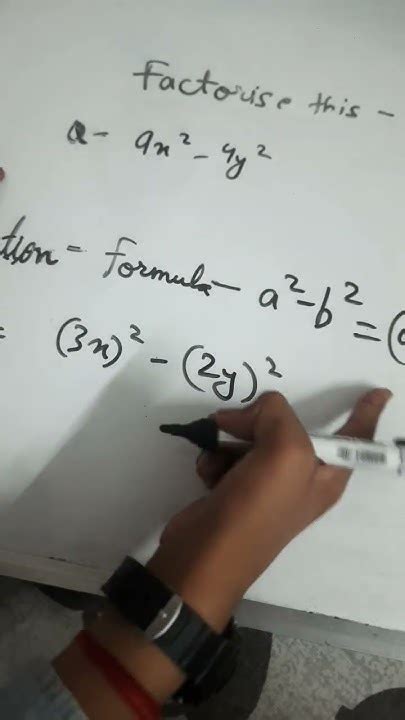 Factorise this -
Q - 9x² - 4y²
tion = formula - a² - b² = (
= (3x)² - (2y)²